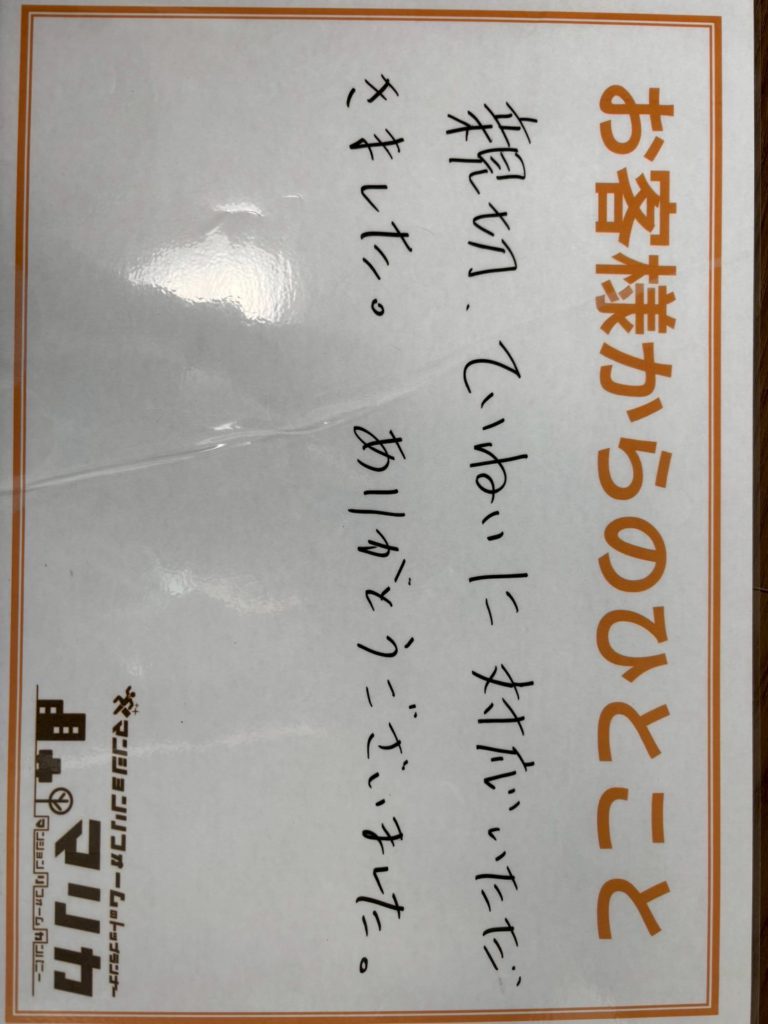 お客様からのひとこと
親切、ていねいに対応いただ
きました。 ありがとうございました。
マンションリフォームのトップランナー
マリカ
マンションリフォームカンパニー